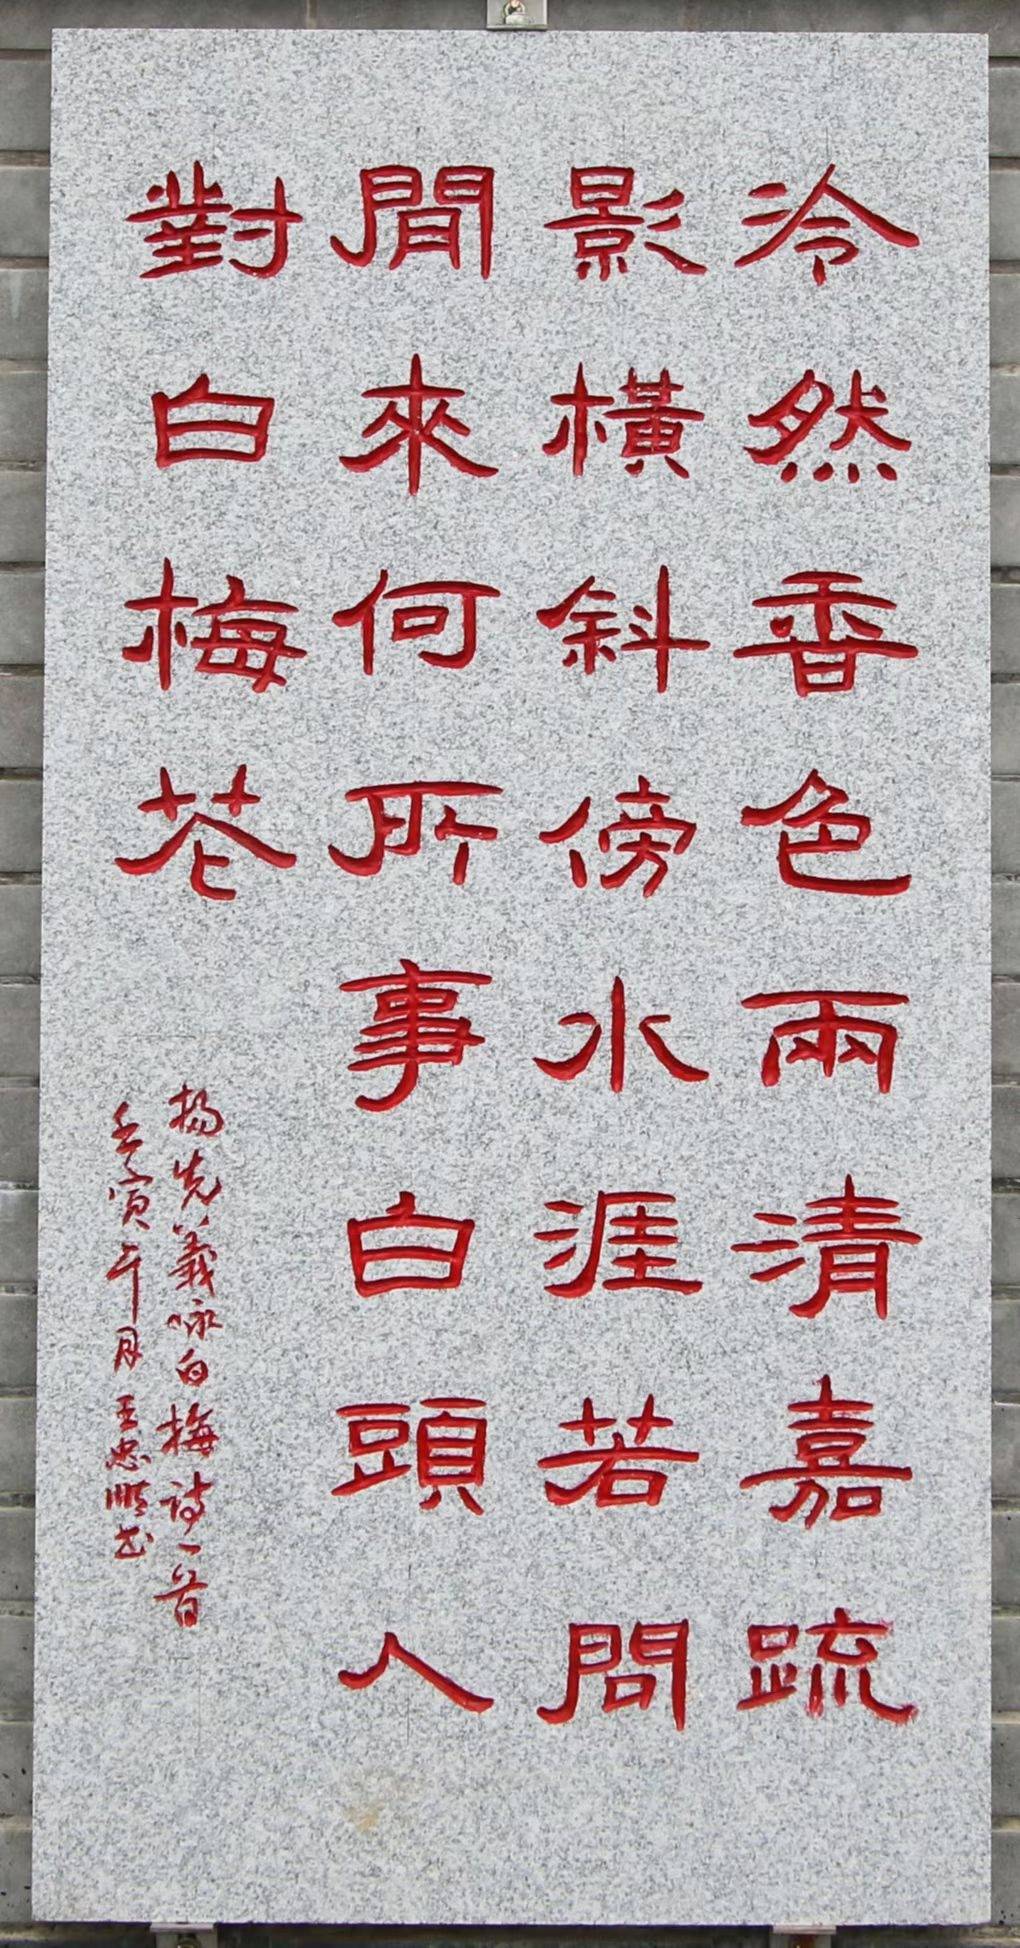 冷然香色兩清嘉疏
影橫斜傍水涯若問
閒來何所事白頭人
對白梅花
楊先義咏白梅詩一首
壬寅午月王忠順书